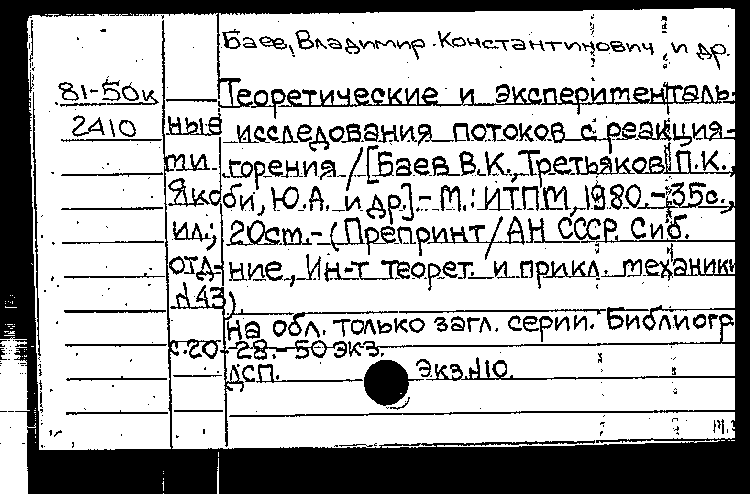 Баев, Владимир Константинович и др.
81-50к Теоретические и эксперименталь-
2410 ные исследования потоков с реакция-
ти горения / [Баев В.К., Третьяков П.К.,
Якоби, Ю.А. и др] - М.: ИТПМ, 1980. - 35с.,
ил.; 20ст. - (Препринт / АН СССР. Сиб.
отд-ние, Ин-т теорет. и прикл. механики
N43).
на обл. только загл. серии. Библиогр
с. 20-28. - 50 экз.
ДСП. Экз.N10.